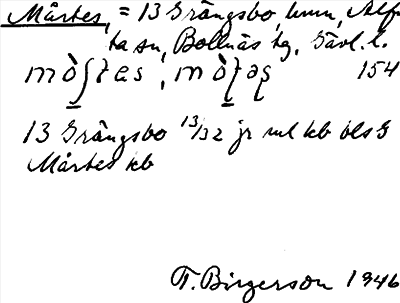 Mårtes, = 13 Grängsbo, hmn, Alf-
ta sn, Bollnäs tg, Gävl. l.
154
13 Grängsbo 13/32 jr ml kb bls G
Mårtes kb
T. Birgerson 1946